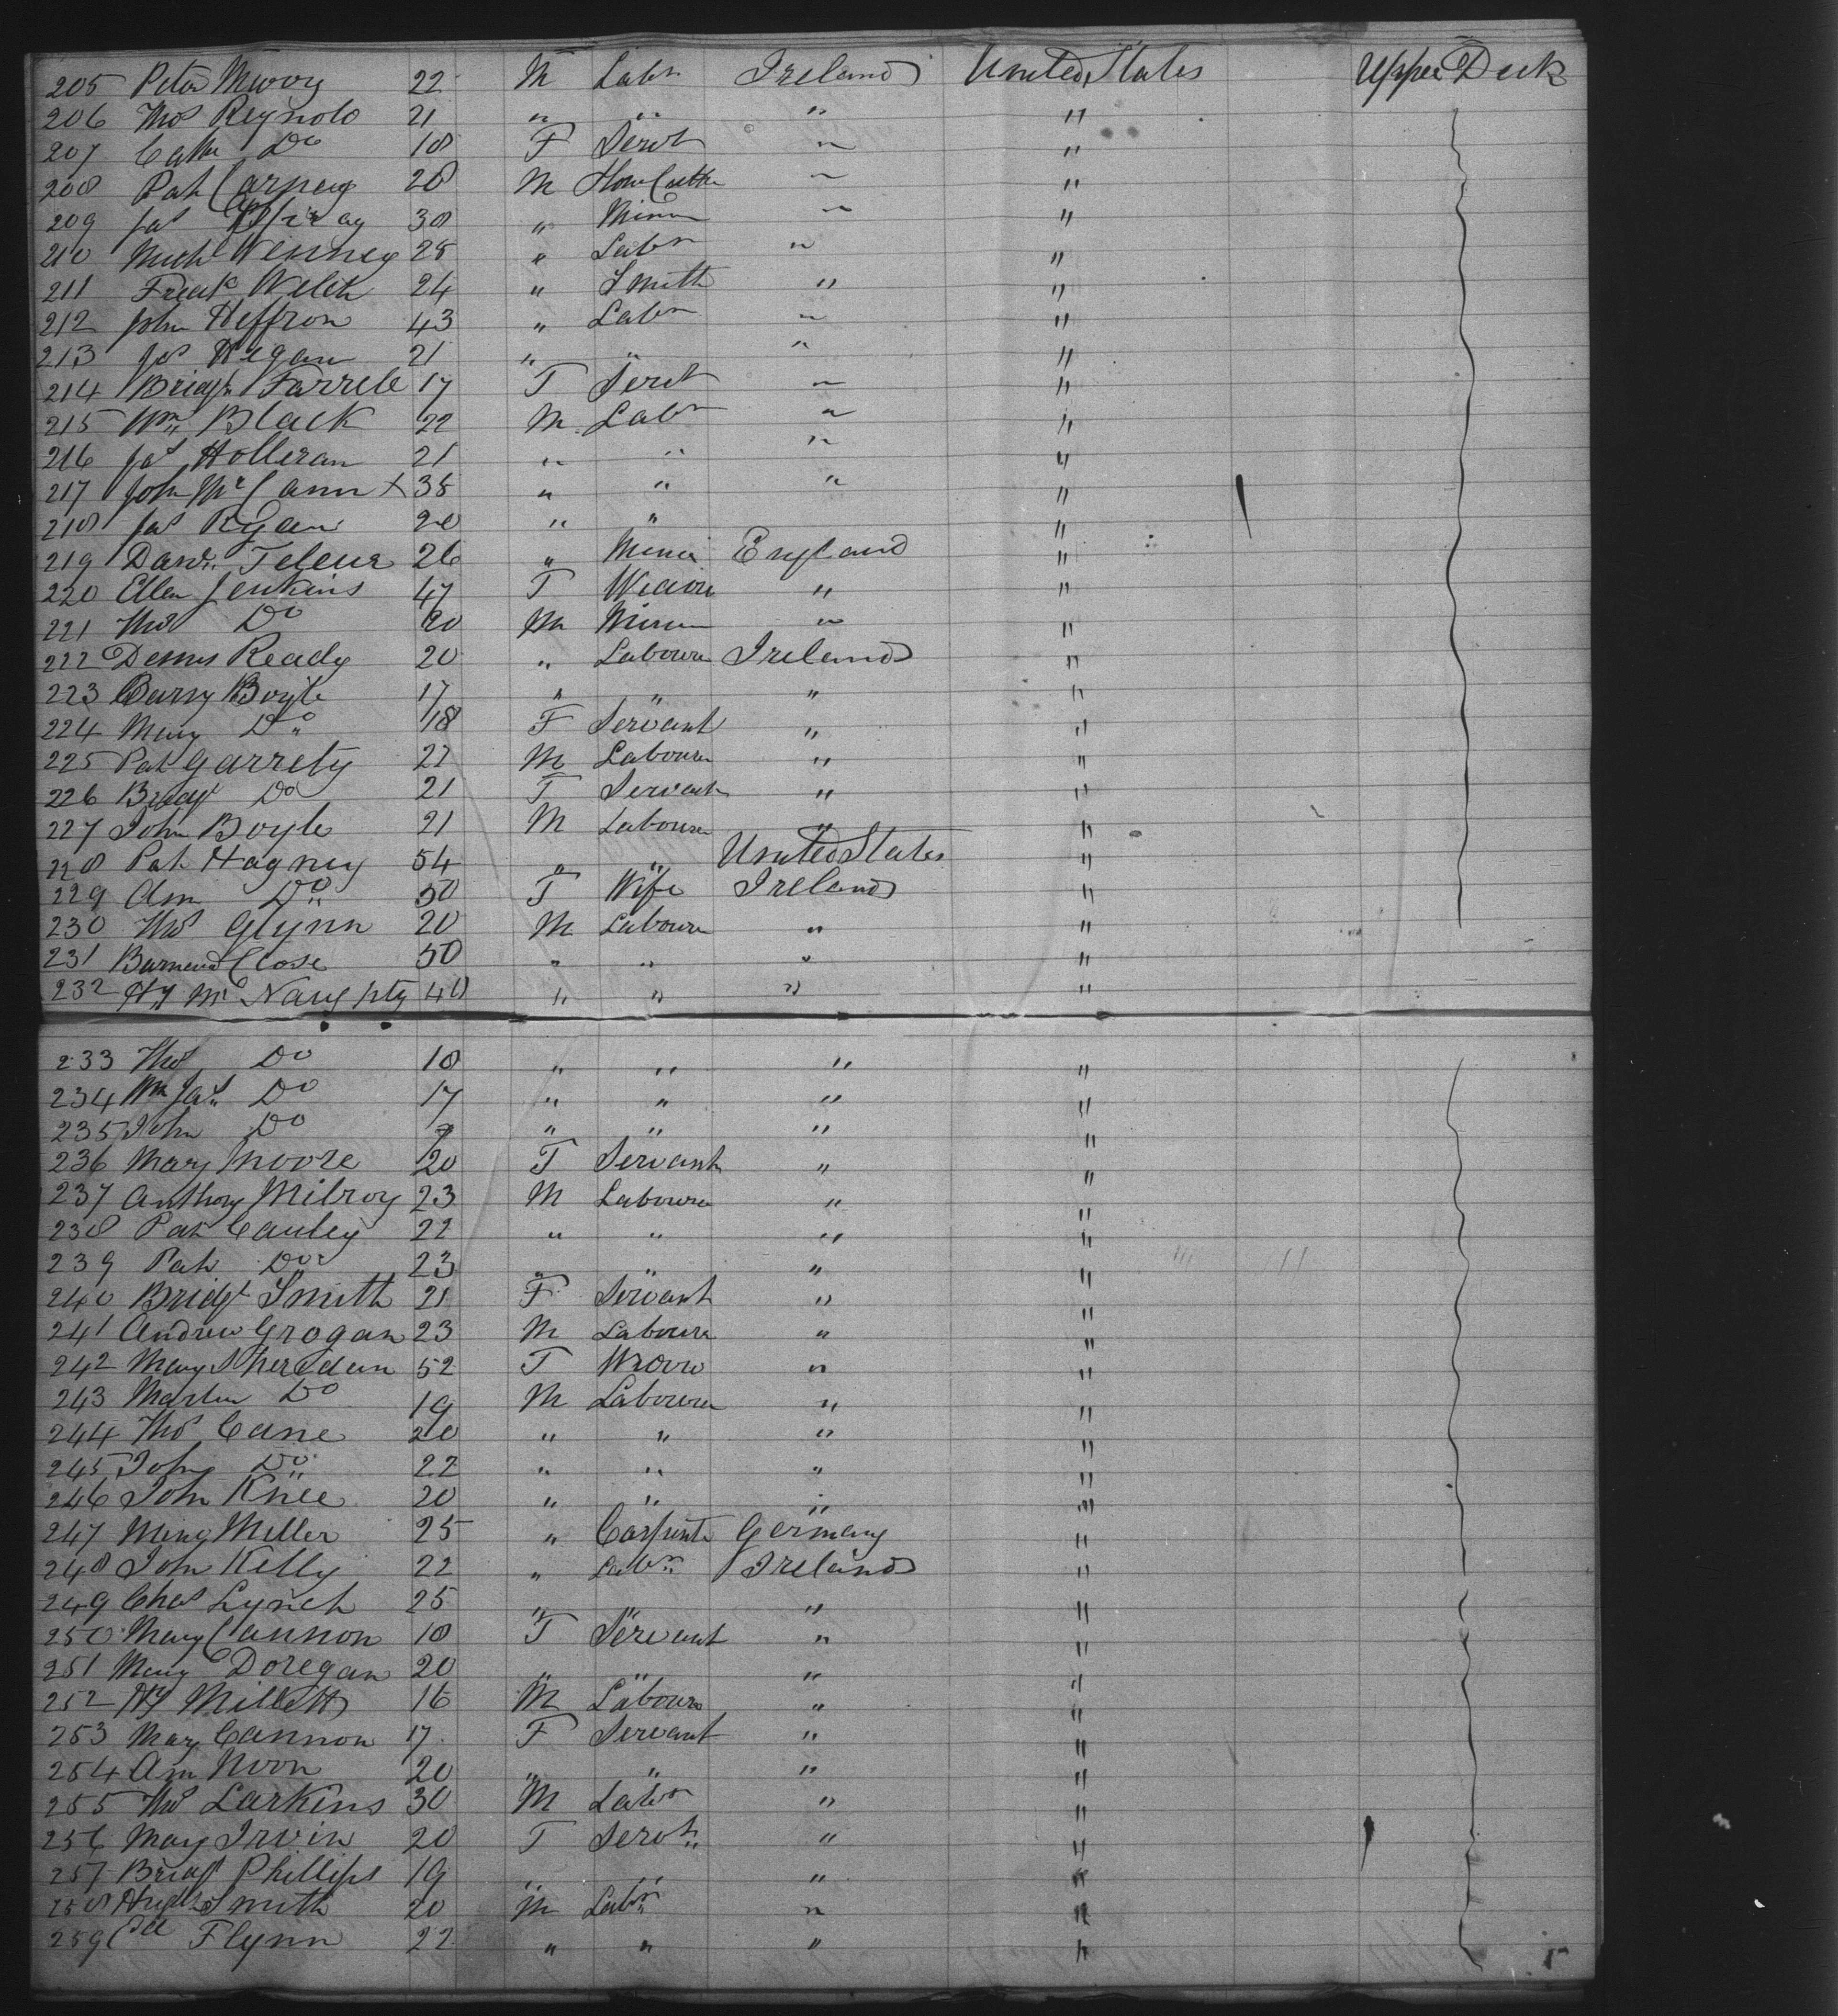 205 Peter 22 M Labr Ireland United States Upper Deck
206 Thos Reynold 21 " " " "
207 Cath Do 18 F Servt " "
208 Pat Carney 28 M " "
209 Jas 30 " Miner " "
210 Mich 28 " Labr " "
211 Fredk Welch 24 " Smith " "
212 John Heffron 43 " Labr " "
213 Jas Regan 21 " " " "
214 Bridgt Farrele 17 F Servt " "
215 Wm Black 22 M Labr " "
216 Jas Holleran 21 " " " "
217 John McCann + 38 " " " "
218 Jas Ryan 20 " " "
219 26 " Miner England "
220 Ellen Jenkins 47 F "
221 Thos Do 20 M Miner " "
222 Dennis Ready 20 " Labourer Ireland "
223 Boyle 17 " " " "
224 Mary Do 18 F Servant " "
225 Pat Garrety 22 M Labourer " "
226 Bridgt Do 21 F Servant " "
227 John Boyle 21 M Labourer " "
228 Pat Hagney 54 " " United States "
229 Ann Do 50 F Wife Ireland "
230 Thos Glynn 20 M Labourer " "
231 Close 50 " " " "
232 Hy McNaughty 40 " " " "
233 Thos Do 18 " " " "
234 Wm Jas Do 17 " " " "
235 John Do " " " "
236 Mary Moore 20 F Servant " "
237 Anthony Milroy 23 M Labourer " "
238 Pat Cauley 22 " " " "
239 Pat Do 23 " " "
240 Bridgt Smith 21 F Servant " "
241 Andrew Grogan 23 M Labourer " "
242 Mary Sheridan 52 F " "
243 Martin Do 19 M Labourer " "
244 Thos Cane 20 " " " "
245 John Do 22 " " " "
246 John Knee 20 " " " "
247 Miller 25 " Carpenter Germany "
248 John Kelly 22 " Labr Ireland "
249 Chas Lynch 25 " " " "
250 Mary Cannon 18 F Servant " "
251 Mary Doregan 20 " " " "
252 Hy Millett 16 M Labourer " "
253 Mary Cannon 17 F Servant " "
254 Ann Noon 20 " " " "
255 Thos Larkins 30 M Labr " "
256 Mary Irvin 20 F Servt " "
257 Bridgt Phillips 19 " " " "
258 Hugh Smith 20 M Labr " "
259 Flynn 22 " " " "